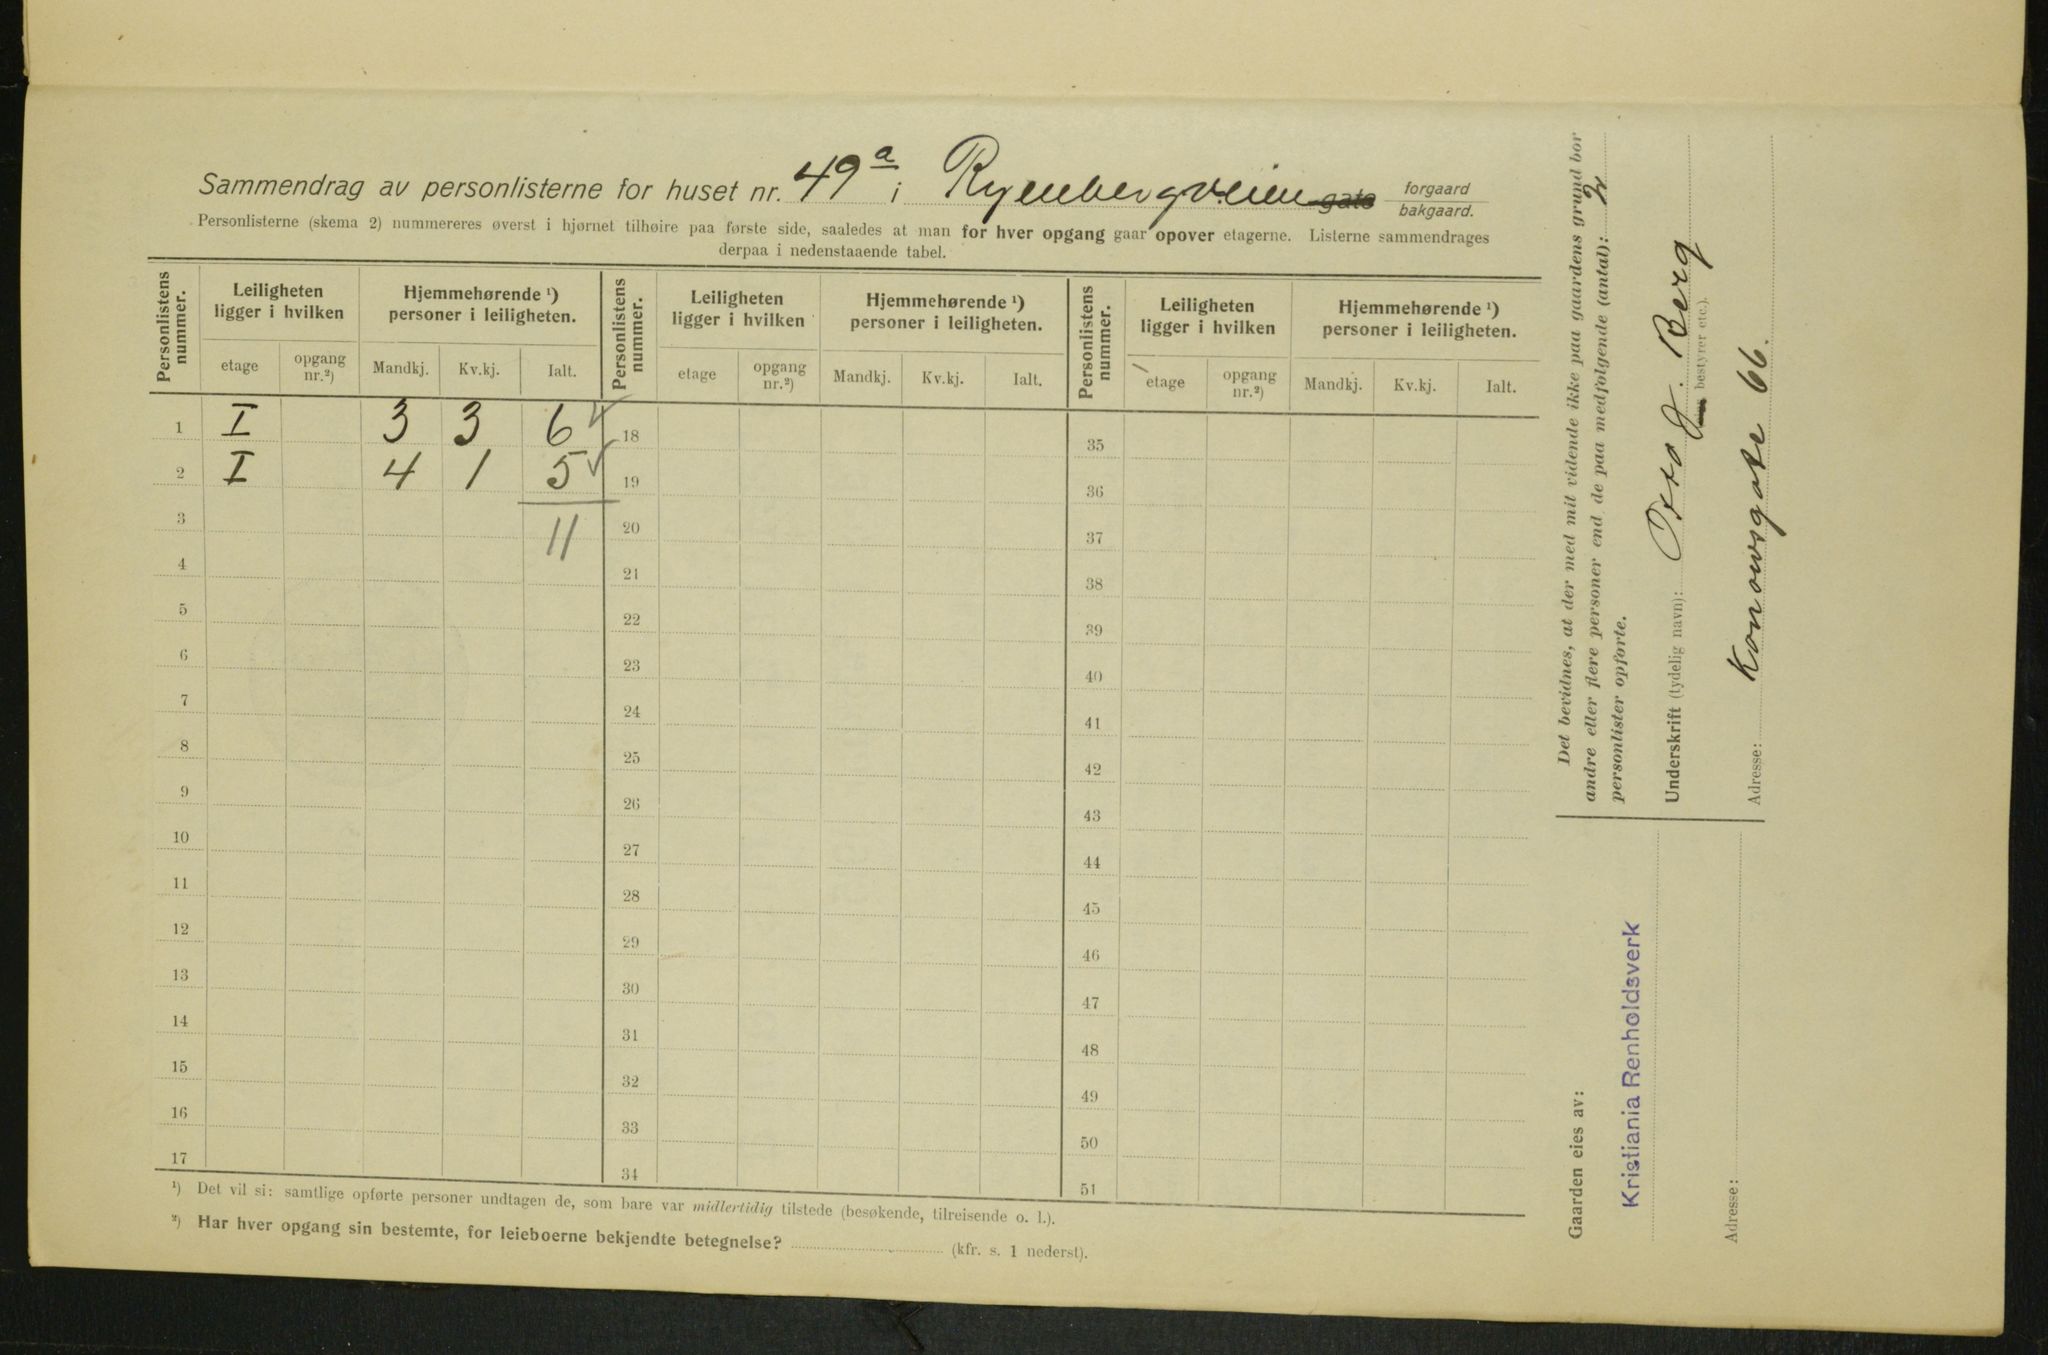 Sammendrag av personlisterne for huset nr. 49a i Ryenbergveien gate forgaard bakgaard.
Personlisterne (skema 2) nummereres øverst i hjørnet tilhøire paa første side, saaledes at man for hver opgang gaar opover etagerne. Listerne sammendrages
derpaa i nedenstaaende tabel.
Personlistens nummer. Leiligheten ligger i hvilken Hjemmehørende ¹) personer i leiligheten. Personlistens nummer. Leiligheten ligger i hvilken Hjemmehørende ¹) personer i leiligheten. Personlistens nummer. Leiligheten ligger i hvilken Hjemmehørende ¹) personer i leiligheten.
etage opgang nr.²) Mandkj. Kv.kj. Ialt. etage opgang nr.²) Mandkj. Kv.kj. Ialt. etage opgang nr.²) Mandkj. Kv.kj. Ialt.
1 I 3 3 6 ✓ 18 35
2 I 4 1 5 ✓ 19 36
3 11 20 37
4 21 38
5 22 39
6 23 40
7 24 41
8 25 42
9 26 43
10 27 44
11 28 45
12 29 46
13 30 47
14 31 48
15 32 49
16 33 50
17 34 51
¹) Det vil si: samtlige opførte personer undtagen de, som bare var midlertidig tilstede (besøkende, tilreisende o. l.).
²) Har hver opgang sin bestemte, for leieboerne bekjendte betegnelse? (kfr. s. 1 nederst).
Det bevidnes, at der med mit vidende ikke paa gaardens grund bor
andre eller flere personer end de paa medfølgende (antal): 2
personlister opførte.
Underskrift (tydelig navn): Otto J. Berg
bestyrer etc.).
Adresse: Konowsgate 66.
Gaarden eies av:
Kristiania Renholdsverk
Adresse: